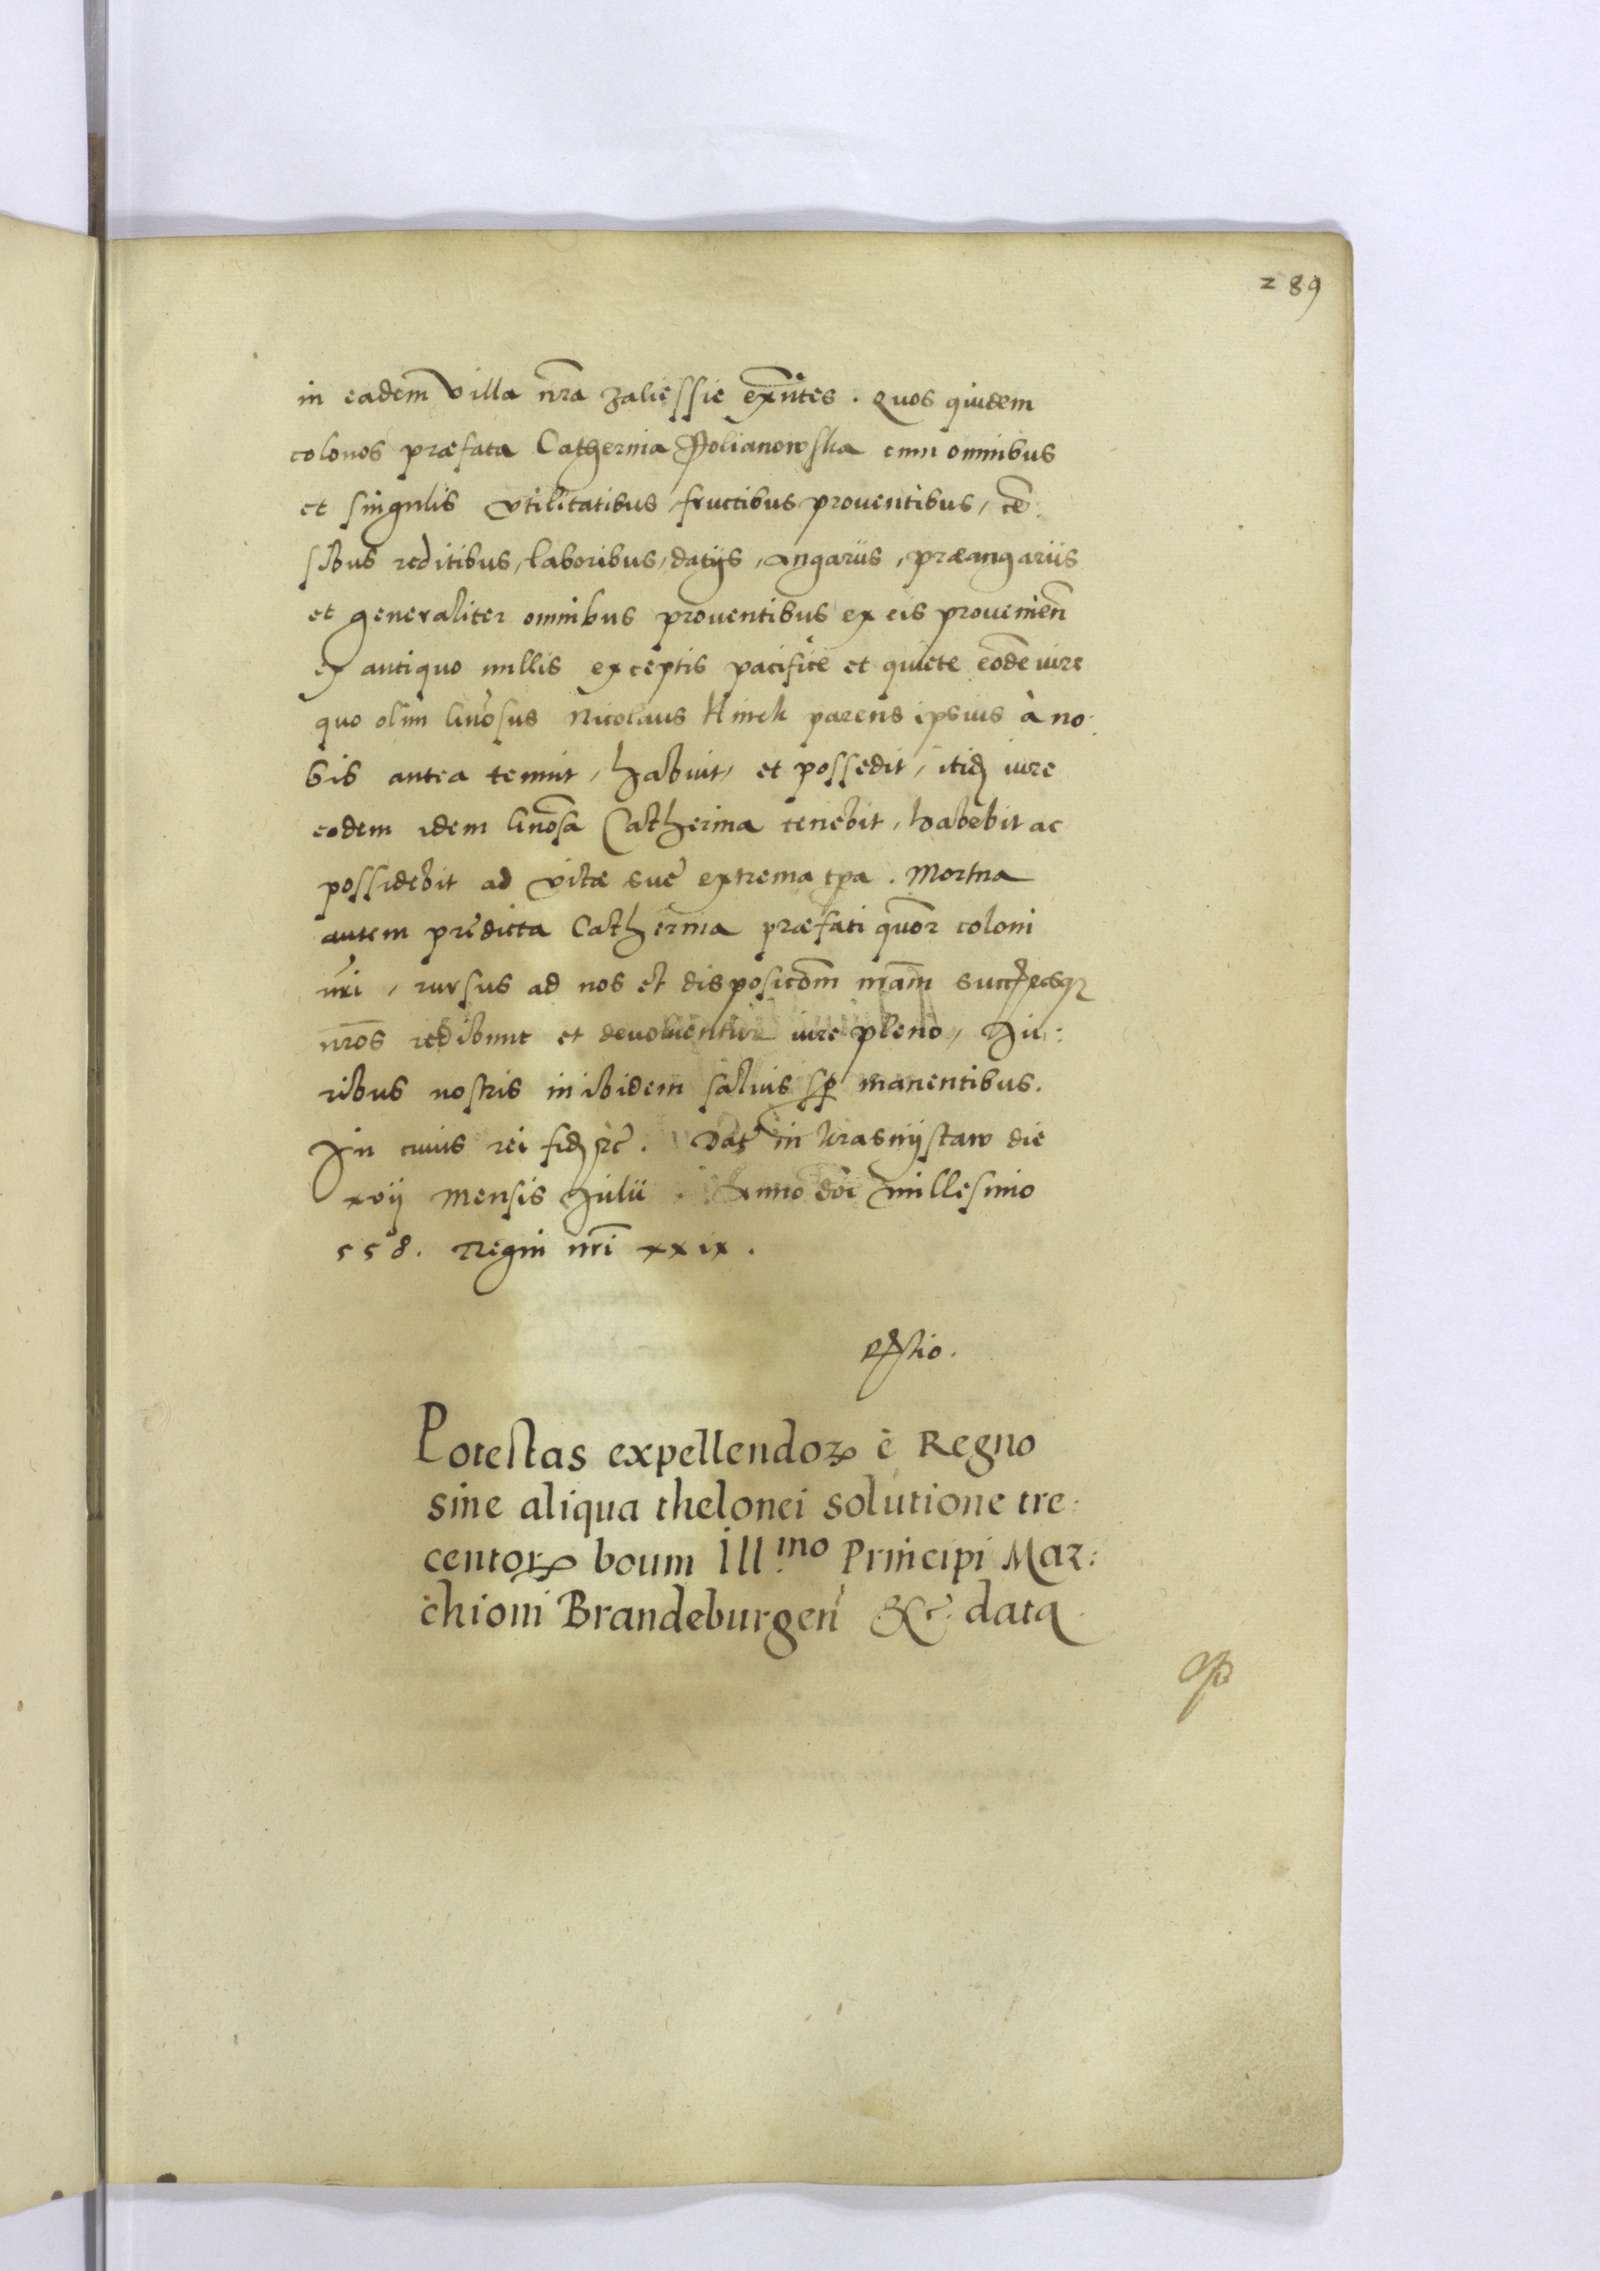 289
in eadem villa nra̅ Zaliessie exn̅tes. Quos quidem
colonos præfata Catherina Polianowska cum omnibus
et singulis vtilitatibus, fructibus prouentibus, ce̅:
sibus reditibus, laboribus, datijs, angariis, præangariis
et generaliter omnibus prouentibus ex eis prouenien̅
ex antiquo nullis exceptis pacifice et quiete eode̅ iure
quo olim Nicolaus Hinek parens ipsius à no:
bis antea tenuit, habuit, et possedit, itidȩ iure
eodem idem Catherina tenebit, habebit ac
possidebit ad vitæ sue extrema tp̅a. Mortua
autem predicta Catherina præfati quor̅ coloni
nr̅i, rursus ad nos et disposico̅m nr̅am
nr̅os redibunt et deuoluentur iure pleno, Iu:
ribus nostris inibidem saluis sp̱ manentibus.
In cuius rei fidȩ etc̅. Dat̨ in Krasnijstaw die
xvij Mensis Julii. Anno do̅i millesimo
558. Regni nr̅i xxix.
Potestas expellendoꝝ è Regno
sine aliqua thelonei solutione tre:
centorꝝ boum Ill.mo Principi Mar:
chioni Brandeburgen̅ &c. data